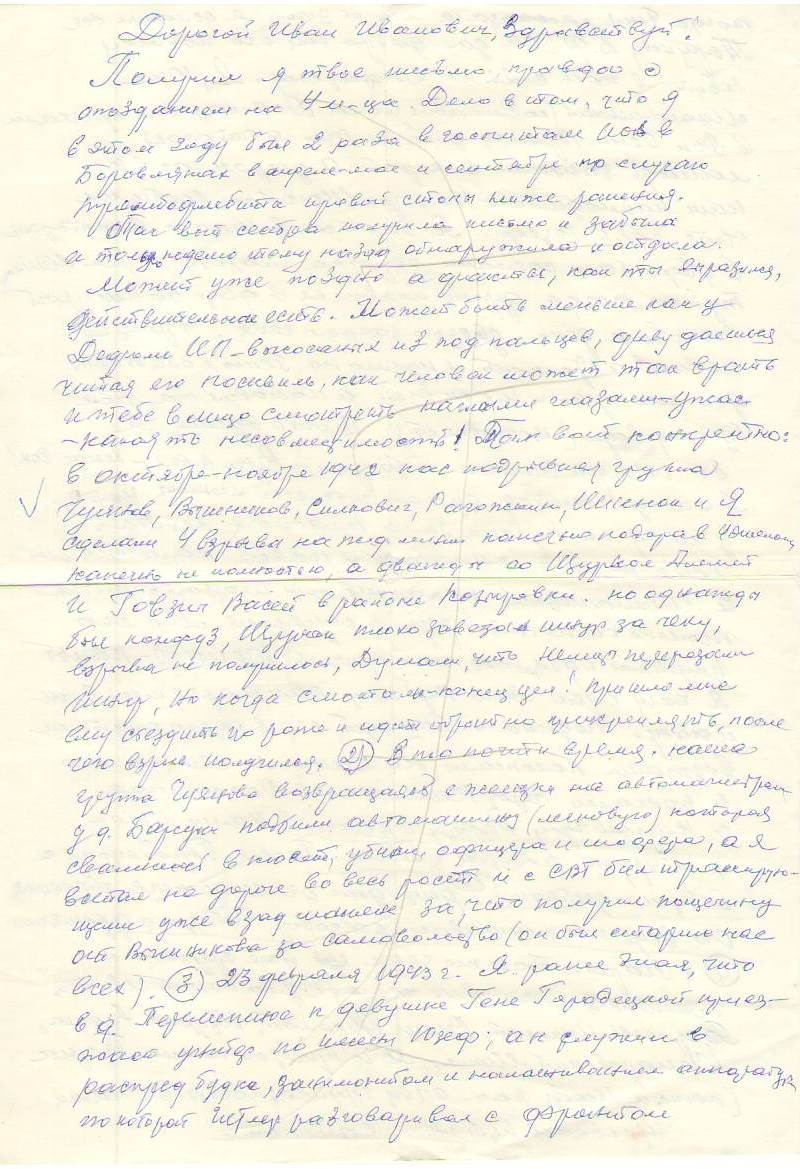 Дорогой Иван Иванович, Здравствуй.
Получил я твое письмо, правда с
опозданием на 4 м-ца. Дело в том, что я
в этом году был 2 раза в госпитале ИОВ в
Боровлянах в апреле-мае и сентябре по случаю
тромбофлебита правой стопы ниже ранения.
Так вот сестра получила письмо и забыла
и только неделю тому назад обнаружила и отдала.
Может уже поздно а факты, как ты выразился,
действительно есть. Может быть меньше как у
Дедюли ИП - высосаных из под пальцев, диву даешься
читая его пасквиль, как человек может так врать
и тебе в лицо смотреть наглыми глазами - ужас
- какая то несовместимость! Так вот конкретно:
в октябре-ноябре 1942 нас подрывная группа
Вишников, Силкович, Рагожкин, и Я
сделали 4 взрыва на жд линии 4 эшелона
конечно не полностью, а дважды со
и Говзич Васей в районе Козыревки. но однажды
был конфуз, плохо завязал шнур за чеку,
взрыва не получилось, Думали, что немцы перерезали
шнур, но когда смотали - конец цел! пришлось мне
ему съездить по роже и идти обратно прикреплять, после
чего взрыв получился. (2) В то почти время. наша
группа возвращаясь с на автомагистрали
у д. Барсуки подбили автомашину (легковую) которая
свалилась в кювет, убили офицера и шофера, а я
востал на дороге во весь рост и с СВТ бил трассирую-
щими уже взад за, что получил пощечину
от Вишникова за самовольство (он был старше нас
всех). (3) 23 февраля 1943 г. Я ранее зная, что
в д. к девушке Гене Городецкой приез-
жает унтер по имени Юзеф; а он служил в
распред будке, занимался и налаживанием аппаратуры
по которой Гитлер разговаривал с фронтом